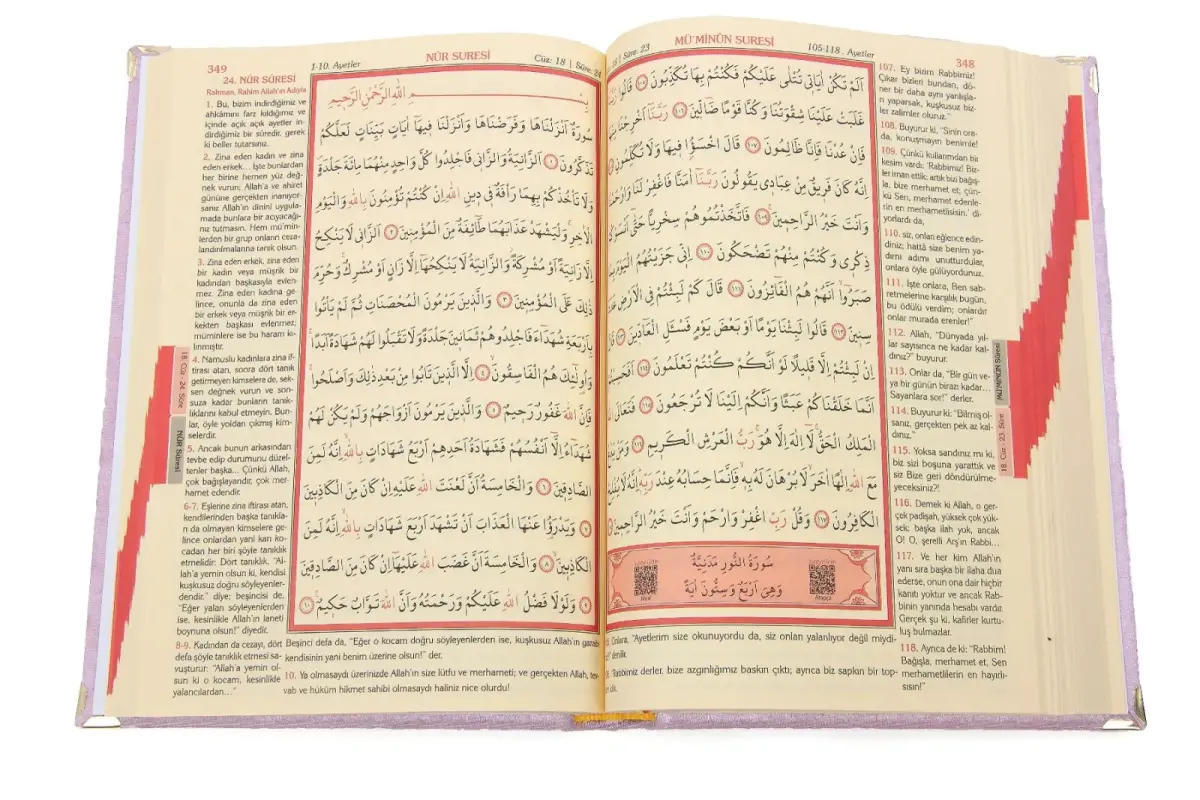 348
MÜ'MİNÛN SURESİ
105-118. Ayetler
Sûre: 23
اَلَمْ تَكُنْ اٰيَاتٖي تُتْلٰى عَلَيْكُمْ فَكُنْتُمْ بِهَا تُكَذِّبُونَ ﴿١٠٥﴾ قَالُوا
غَلَبَتْ عَلَيْنَا شِقْوَتُنَا وَكُنَّا قَوْمًا ضَٓالّٖينَ ﴿١٠٦﴾ رَبَّنَٓا اَخْرِجْنَا
فَاِنْ عُدْنَا فَاِنَّا ظَالِمُونَ ﴿١٠٧﴾ قَالَ اخْسَؤُ۫ا فٖيهَا وَلَا تُكَلِّمُونِ
اِنَّهُ كَانَ فَرٖيقٌ مِنْ عِبَادٖي يَقُولُونَ رَبَّنَٓا اٰمَنَّا فَاغْفِرْ لَنَا
وَاَنْتَ خَيْرُ الرَّاحِمٖينَ ﴿١٠٩﴾ فَاتَّخَذْتُمُوهُمْ سِخْرِيًّا حَتّٰٓى
ذِكْرٖي وَكُنْتُمْ مِنْهُمْ تَضْحَكُونَ ﴿١١٠﴾ اِنّٖي جَزَيْتُهُمُ الْيَوْمَ
صَبَرُٓوا اَنَّهُمْ هُمُ الْفَٓائِزُونَ ﴿١١١﴾ قَالَ كَمْ لَبِثْتُمْ فِي الْاَرْضِ
سِنٖينَ ﴿١١٢﴾ قَالُوا لَبِثْنَا يَوْمًا اَوْ بَعْضَ يَوْمٍ فَسْـَٔلِ الْعَٓادّٖينَ
اِنْ لَبِثْتُمْ اِلَّا قَلٖيلًا لَوْ اَنَّكُمْ كُنْتُمْ تَعْلَمُونَ ﴿١١٤﴾
اَنَّمَا خَلَقْنَاكُمْ عَبَثًا وَاَنَّكُمْ اِلَيْنَا لَا تُرْجَعُونَ ﴿١١٥﴾ فَتَعَالَى
الْمَلِكُ الْحَقُّۚ لَٓا اِلٰهَ اِلَّا هُوَۚ رَبُّ الْعَرْشِ الْكَرٖيمِ ﴿١١٦﴾
مَعَ اللّٰهِ اِلٰهًا اٰخَرَۙ لَا بُرْهَانَ لَهُ بِهٖۙ فَاِنَّمَا حِسَابُهُ عِنْدَ رَبِّهٖؕ اِنَّهُ لَا
الْكَافِرُونَ ﴿١١٧﴾ وَقُلْ رَبِّ اغْفِرْ وَارْحَمْ وَاَنْتَ خَيْرُ الرَّاحِمٖينَ
سُورَةُ النُّورِ مَدَنِيَّةٌ
وَهِيَ اَرْبَعٌ وَسِتُّونَ اٰيَةً
107. Ey bizim Rabbimiz!
Çıkar bizleri bundan, dö-
ner bir daha aynı yanlışla-
rı yaparsak, kuşkusuz biz-
ler zalimler oluruz."
108. Buyurur ki, "Sinin ora-
da, konuşmayın benimle!
109. Çünkü kullarımdan bir
kesim vardı; 'Rabbimiz! Biz-
ler iman ettik; artık bizi bağış-
la, bize merhamet et; çün-
kü Sen, merhamet edenle-
rin en merhametlisisin.' di-
yorlardı da,
110. siz, onları eğlence edin-
diniz; hattâ size benim ya-
dımı unutturdular,
onlara öyle gülüyordunuz.
111. İşte onlara, Ben sab-
retmelerine karşılık bugün,
bu ödülü verdim; onlardır
onlar murada erenler!"
112. Allah, "Dünyada yıl-
lar sayısınca ne kadar kal-
dınız?" buyurur.
113. Onlar da, "Bir gün ve-
ya bir günün birazı kadar...
Sayanlara sor!" derler.
114. Buyurur ki: "Bilmiş ol-
sanız, gerçekten pek az kal-
dınız."
115. Yoksa sandınız mı ki,
biz sizi boşuna yarattık ve
siz Bize geri döndürülme-
yeceksiniz?!
116. Demek ki Allah, o ger-
çek padişah, yüksek çok yük-
sek; başka ilah yok, ancak
O! O, şerefli Arş'ın Rabbi...
117. Ve her kim Allah'ın
yanı sıra başka bir ilaha dua
ederse, onun ona dair hiçbir
kanıtı yoktur ve ancak Rab-
binin yanında hesabı vardır.
Gerçek şu ki, kafirler kurtu-
luş bulmazlar.
118. Ayrıca de ki: "Rabbim!
Bağışla, merhamet et, Sen
merhametlilerin en hayırlı-
sısın!"
Onlara, "Ayetlerim size okunuyordu da, siz onları yalanlıyor değil miydi-
denilk.
Rabbimiz derler, bize azgınlığımız baskın çıktı; ayrıca biz sapkın bir top-
MÜ'MİNÛN Sûresi
18. Cüz - 23. Sûre
349
1-10. Ayetler
NÛR SURESİ
Cüz: 18 | Sûre: 24
24. NÛR SÛRESİ
Rahman, Rahîm Allah'ın Adıyla
1. Bu, bizim indirdiğimiz ve
ahkâmını farz kıldığımız ve
içinde açık açık ayetler in-
dirdiğimiz bir sûredir, gerek
ki beller tutarsınız.
2. Zina eden kadın ve zina
eden erkek... İşte bunlardan
her birine hemen yüz değ-
nek vurun; Allah'a ve ahiret
gününe gerçekten inanıyor-
sanız Allah'ın dinini uygula-
mada bunlara bir acıyacağı-
nız tutmasın. Hem mü'min-
lerden bir grup onların ceza-
landırılmalarına tanık olsun.
3. Zina eden erkek, zina eden
bir kadın veya müşrik bir
kadından başkasıyla evlen-
mez. Zina eden kadına ge-
lince, onunla da zina eden
bir erkek veya müşrik bir er-
kekten başkası evlenmez;
müminlere ise bu haram kı-
lınmıştır.
4. Namuslu kadınlara zina if-
tirası atan, sonra dört tanık
getirmeyen kimselere de, sek-
sen değnek vurun ve son-
suza kadar bunların tanık-
lıklarını kabul etmeyin. Bun-
lar, öyle yoldan çıkmış kim-
selerdir.
5. Ancak bunun arkasından
tevbe edip durumunu düzel-
tenler başka... Çünkü Allah,
çok bağışlayandır, çok mer-
hamet edendir.
6-7. Eşlerine zina iftirası atan,
kendilerinden başka tanıkla-
rı da olmayan kimselere ge-
lince onlardan yani karı ko-
cadan her biri şöyle tanıklık
etmelidir: Dört tanıklık, "Al-
lah'a yemin olsun ki, kendisi
kuşkusuz doğru söyleyenler-
dendir" diye; beşincisi de,
"Eğer yalan söyleyenlerden
ise, kesinlikle Allah'ın laneti
boynuna olsun!" diyedir.
8-9. Kadından da cezayı, dört
defa şöyle tanıklık etmesi sa-
vuşturur: "Allah'a yemin ol-
sun ki o kocam, kesinlikle
yalancılardan..."
بِسْمِ اللّٰهِ الرَّحْمٰنِ الرَّحٖيمِ
سُورَةٌ اَنْزَلْنَاهَا وَفَرَضْنَاهَا وَاَنْزَلْنَا فٖيهَٓا اٰيَاتٍ بَيِّنَاتٍ لَعَلَّكُمْ
تَذَكَّرُونَ ﴿١﴾ اَلزَّانِيَةُ وَالزَّانٖي فَاجْلِدُوا كُلَّ وَاحِدٍ مِنْهُمَا مِائَةَ جَلْدَةٍۖ
وَلَا تَأْخُذْكُمْ بِهِمَا رَأْفَةٌ فٖي دٖينِ اللّٰهِ اِنْ كُنْتُمْ تُؤْمِنُونَ بِاللّٰهِ وَالْيَوْمِ
الْاٰخِرِۚ وَلْيَشْهَدْ عَذَابَهُمَا طَٓائِفَةٌ مِنَ الْمُؤْمِنٖينَ ﴿٢﴾ اَلزَّانٖي لَا يَنْكِحُ
اِلَّا زَانِيَةً اَوْ مُشْرِكَةًؗ وَالزَّانِيَةُ لَا يَنْكِحُهَٓا اِلَّا زَانٍ اَوْ مُشْرِكٌۚ وَحُرِّمَ
ذٰلِكَ عَلَى الْمُؤْمِنٖينَ ﴿٣﴾ وَالَّذٖينَ يَرْمُونَ الْمُحْصَنَاتِ ثُمَّ لَمْ يَأْتُوا
بِاَرْبَعَةِ شُهَدَٓاءَ فَاجْلِدُوهُمْ ثَمَانٖينَ جَلْدَةً وَلَا تَقْبَلُوا لَهُمْ شَهَادَةً اَبَدًاۚ
وَاُو۬لٰٓئِكَ هُمُ الْفَاسِقُونَۙ ﴿٤﴾ اِلَّا الَّذٖينَ تَابُوا مِنْ بَعْدِ ذٰلِكَ وَاَصْلَحُواۚ
فَاِنَّ اللّٰهَ غَفُورٌ رَحٖيمٌ ﴿٥﴾ وَالَّذٖينَ يَرْمُونَ اَزْوَاجَهُمْ وَلَمْ يَكُنْ لَهُمْ
شُهَدَٓاءُ اِلَّٓا اَنْفُسُهُمْ فَشَهَادَةُ اَحَدِهِمْ اَرْبَعُ شَهَادَاتٍ بِاللّٰهِۙ اِنَّهُ لَمِنَ
الصَّادِقٖينَ ﴿٦﴾ وَالْخَامِسَةُ اَنَّ لَعْنَتَ اللّٰهِ عَلَيْهِ اِنْ كَانَ مِنَ الْكَاذِبٖينَ
﴿٧﴾ وَيَدْرَؤُ۬ا عَنْهَا الْعَذَابَ اَنْ تَشْهَدَ اَرْبَعَ شَهَادَاتٍ بِاللّٰهِۙ اِنَّهُ لَمِنَ
الْكَاذِبٖينَۙ ﴿٨﴾ وَالْخَامِسَةَ اَنَّ غَضَبَ اللّٰهِ عَلَيْهَٓا اِنْ كَانَ مِنَ الصَّادِقٖينَ
﴿٩﴾ وَلَوْلَا فَضْلُ اللّٰهِ عَلَيْكُمْ وَرَحْمَتُهُ وَاَنَّ اللّٰهَ تَوَّابٌ حَكٖيمٌ ﴿١٠﴾
Beşinci defa da, "Eğer o kocam doğru söyleyenlerden ise, kuşkusuz Allah'ın gazabı
kendisinin yani benim üzerine olsun!" der.
10. Ya olmasaydı üzerinizde Allah'ın size lütfu ve merhameti; ve gerçekten Allah, tev-
vab ve hüküm hikmet sahibi olmasaydı haliniz nice olurdu!
18. Cüz - 24. Sûre
NÛR Sûresi